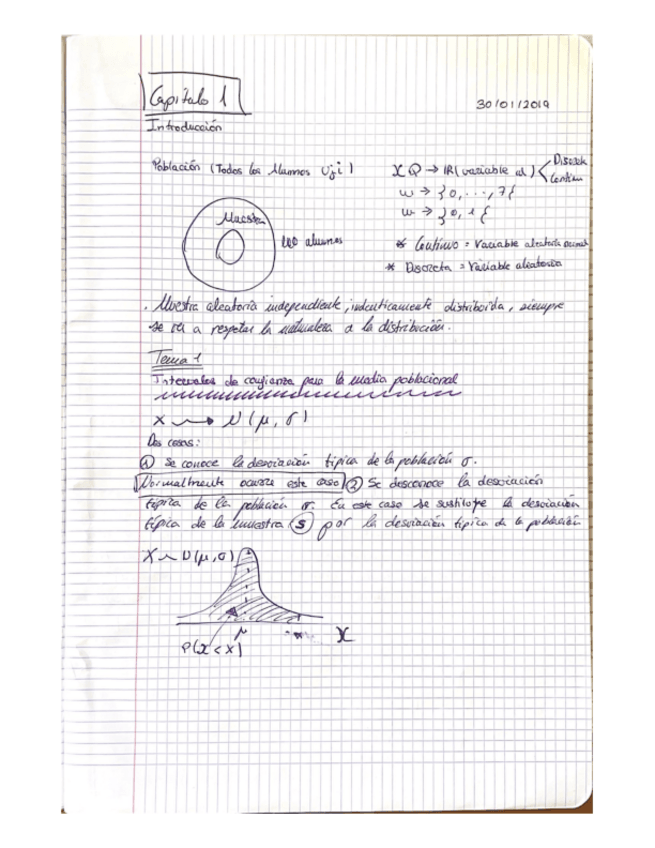 Capítulo 1
30/01/2019
Introducción
Población (Todos los Alumnos Uji)
X Ω → IR (variable al) < Discreta
Contin
w → }0, ..., 7{
w → }0, 1{
Muestra
100 alumnos
* Continuo = Variable aleatoria normal
* Discreta = Variable aleatoria
. Muestra aleatoria independiente, identicamente distribuida, siempre
se va a respetar la naturaleza d la distribución.
Tema 1
Intervalos de confianza para la media poblacional
X ⟿ N(μ, σ)
Dos casos:
① Se conoce la desviación típica de la población σ.
Normalmente ocurre este caso ② Se desconoce la desviación
típica de la población σ. En este caso se sustituye la desviación
típica de la muestra (S) por la desviación típica de la población
X ~ N(μ, σ)
μ
X
P(X < x)